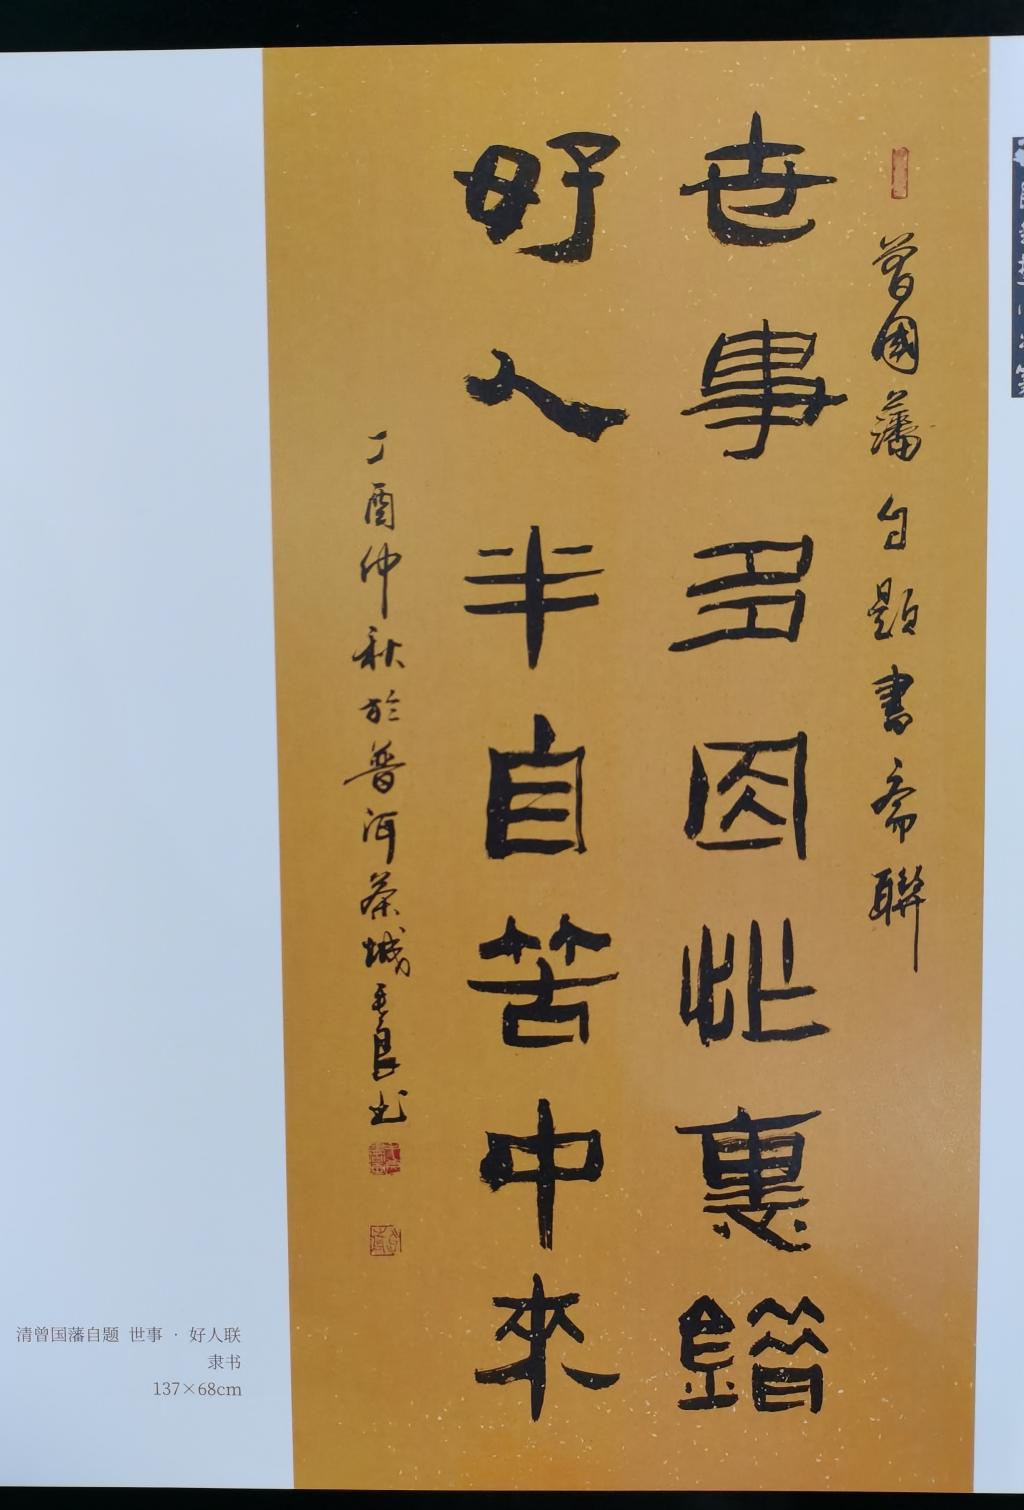 曾國藩自題書斋聯
世事多因忙裏錯
好人半自苦中來
丁酉仲秋於普洱茶城
清曾国藩自题 世事 · 好人联
隶书
137×68cm